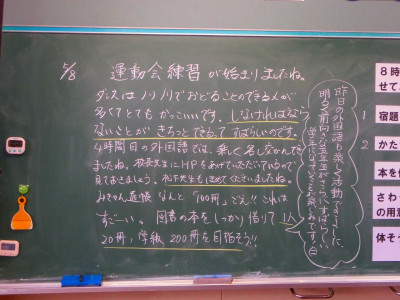 5/8 運動会練習が始まりましたね。
ダンスはノリノリでおどることのできる人が
多くてとてもかっこいいです。しなければなら
ないことがきちっとできるってすばらしいのです。
4時間目の外国語では、楽しく名しなんで
ましたね。校長先生にHPをあげていただいているので
見ておきましょう。松下先生もほめてくださいましたね。
みきゃん通帳 なんと「700冊」ごえ!! これは
すごーい。図書の本をしっかり借りて1人
20冊、学級 200冊を目指そう!!
昨日の外国語も楽しく活動できました。
明るく前向きな
8時
せて
宿題
かた
本を
さわ
の用
体そ
1
2